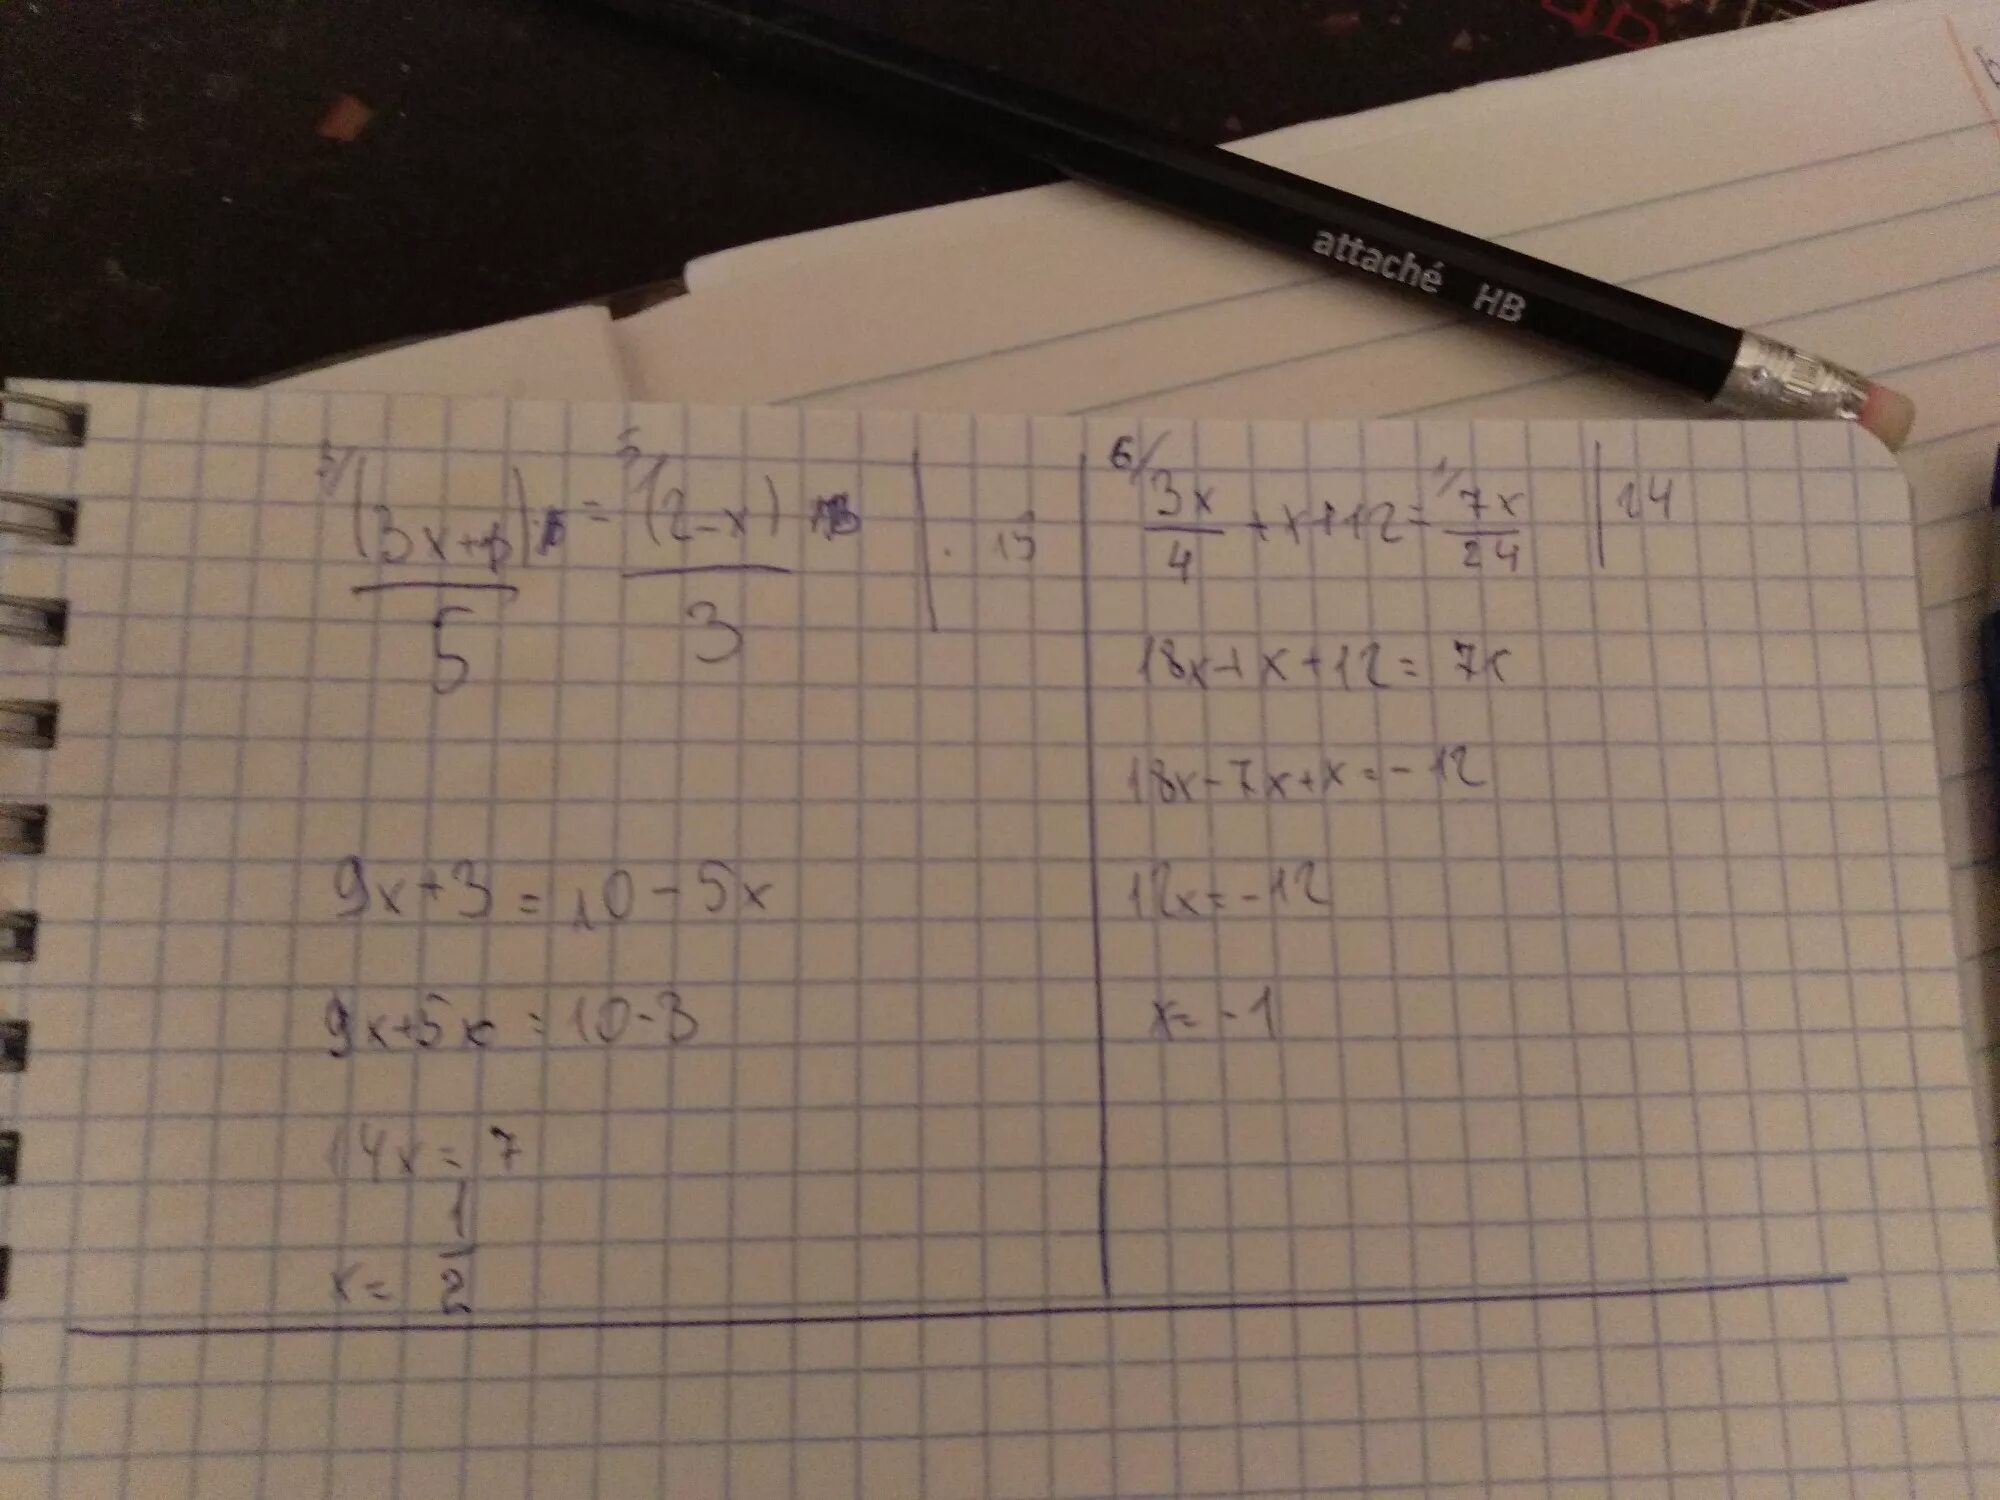 attaché HB
(3x+1) = (2-x) | · 15
5 3
9x+3 = 10-5x
9x+5x = 10-3
14x = 7
x = 1/2
6/ 3x/4 + x+12 = 1/ 7x/24 | 24
18x+x+12 = 7x
18x-7x+x = -12
12x = -12
x = -1